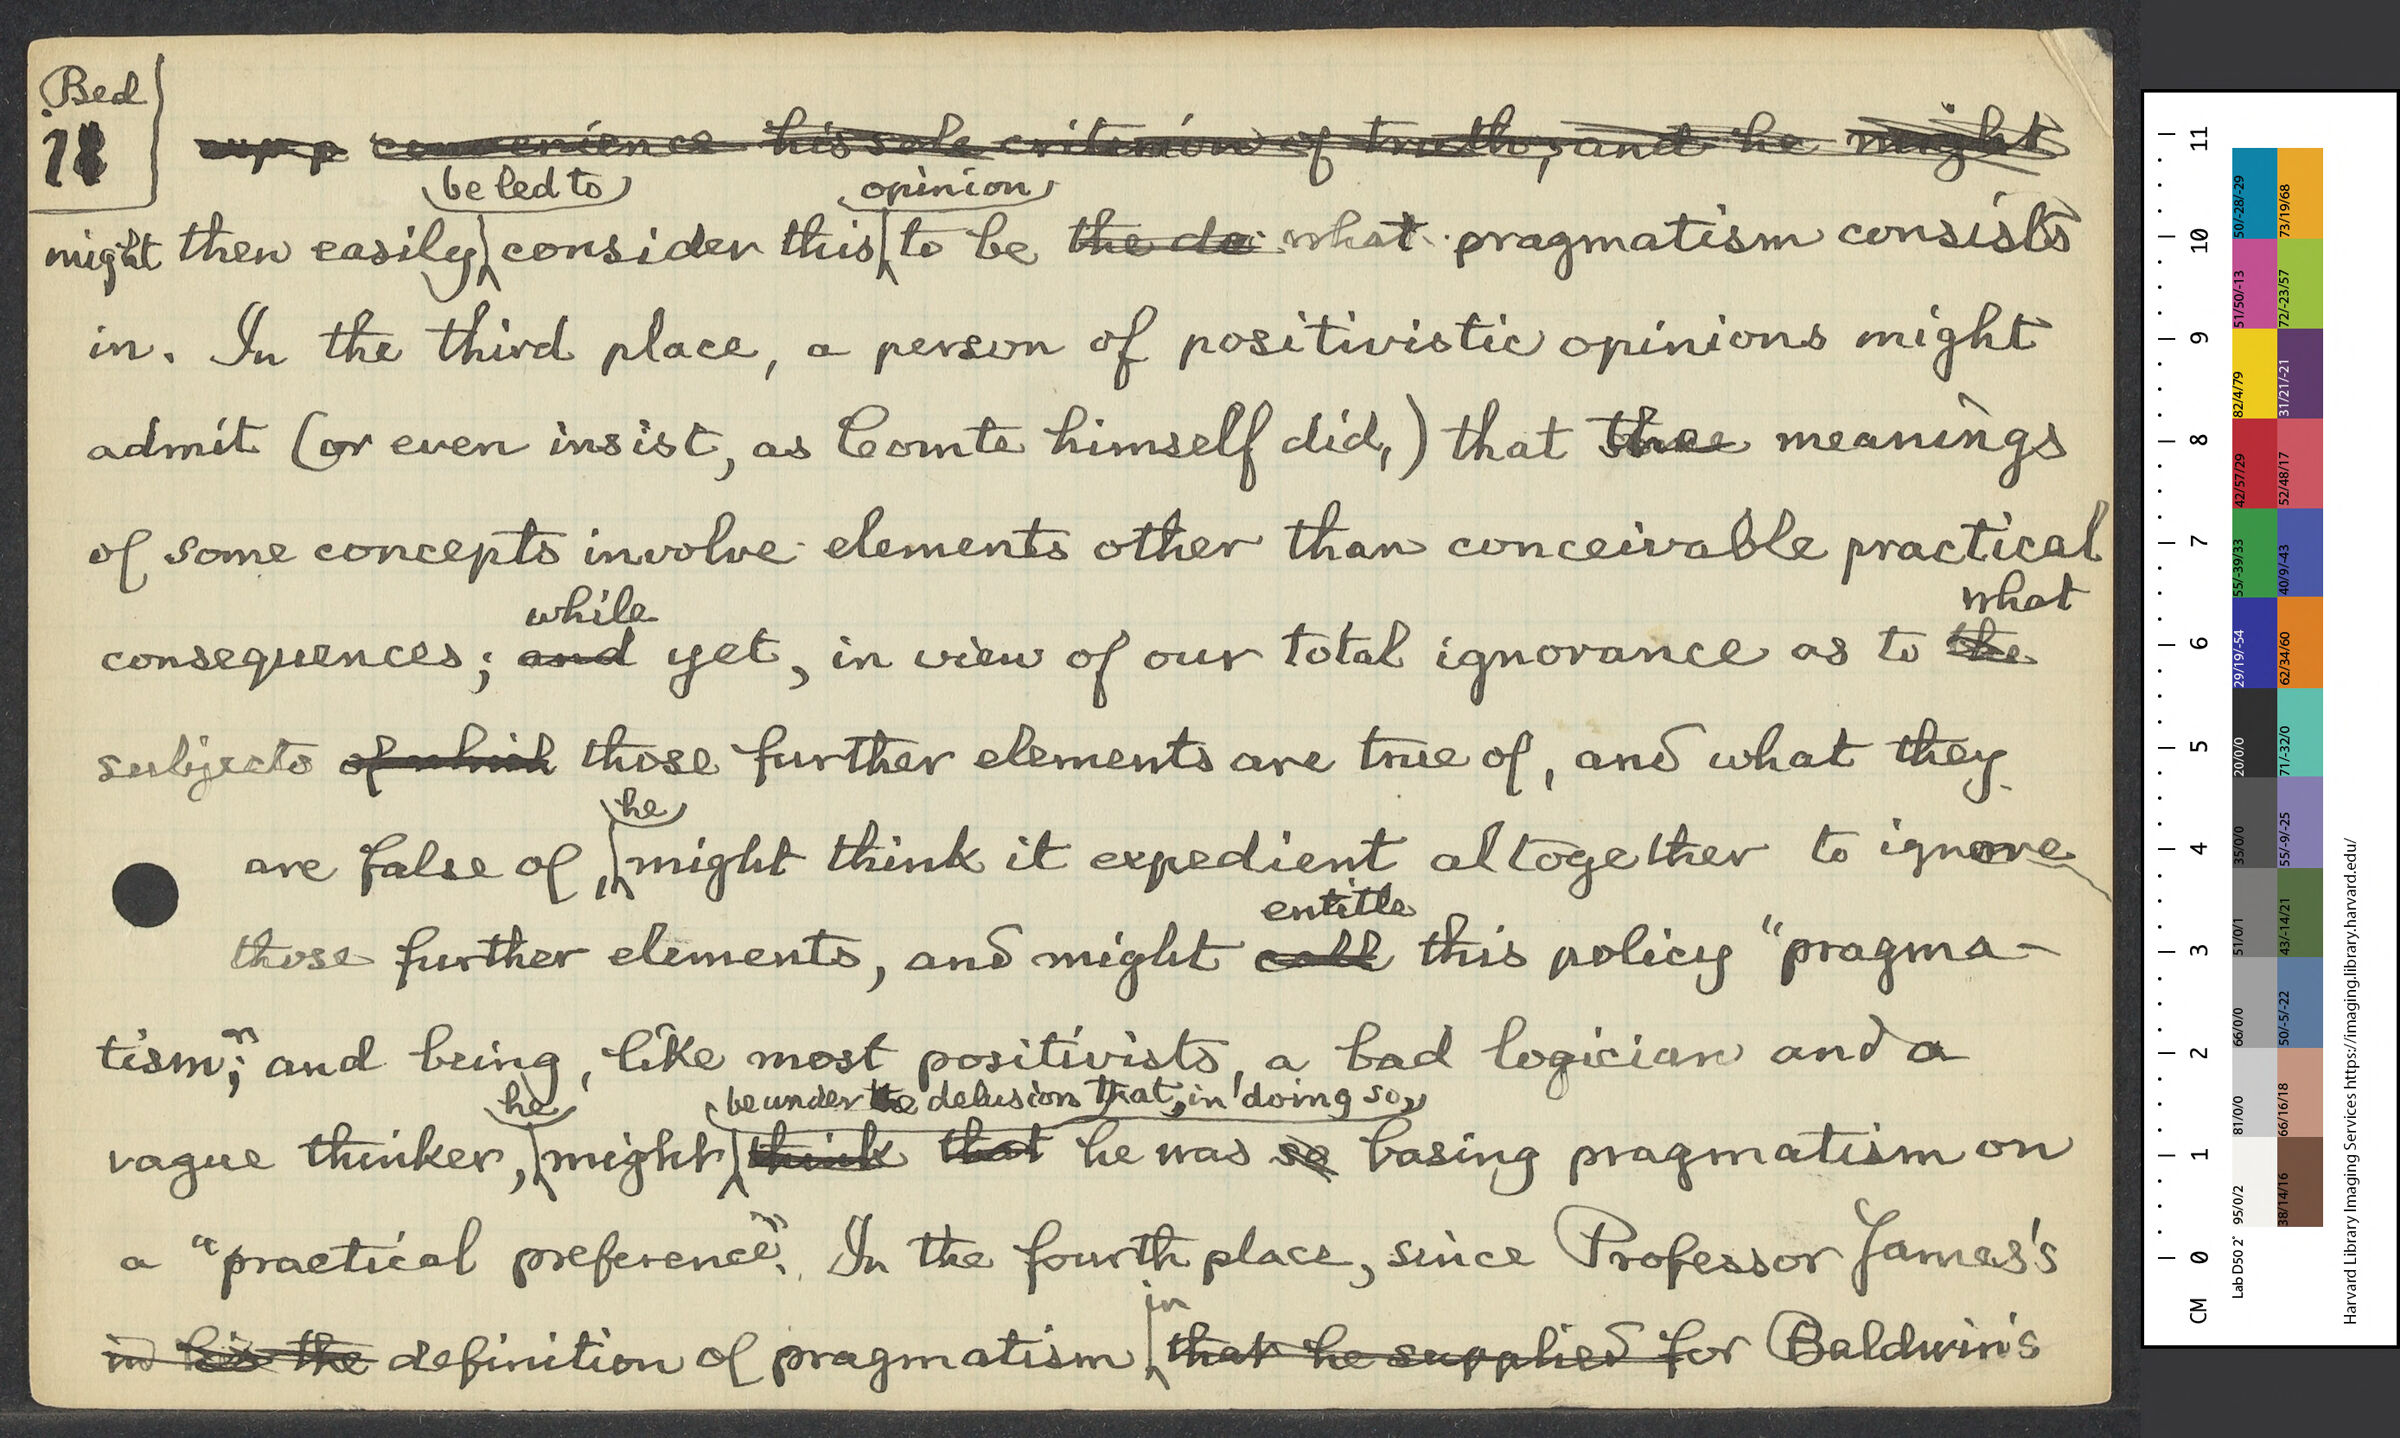 Bed
18
convenience his sole criterion of truth; and he might
be led to opinion
might then easily consider this to be the de what pragmatism consists
in. In the third place, a person of positivistic opinions might
admit (or even insist, as Comte himself did,) that meanings
of some concepts involve elements other than conceivable practical
while what
consequences; and yet, in view of our total ignorance as to the
subjects of which those further elements are true of, and what they
he
are false of, might think it expedient altogether to ignore
entitle
those further elements, and might call this policy "pragma-
tism"; and being, like most positivists, a bad logician and a
he be under the delusion that, in doing so,
vague thinker, might think that he was so basing pragmatism on
a "practical preference". In the fourth place, since Professor James's
in
in his the definition of pragmatism that he supplied for Baldwin's
CM 0 1 2 3 4 5 6 7 8 9 10 11
Lab D50 2° 95/0/2 81/0/0 66/0/0 51/0/1 35/0/0 20/0/0 29/19/-54 55/-39/33 42/57/29 82/4/79 51/50/-13 50/-28/-29
38/14/16 66/16/18 50/-5/-22 43/-14/21 55/-9/-25 71/-32/0 62/34/60 40/9/-43 52/48/17 31/21/-21 72/-23/57 73/19/68
Harvard Library Imaging Services https://imaging.library.harvard.edu/